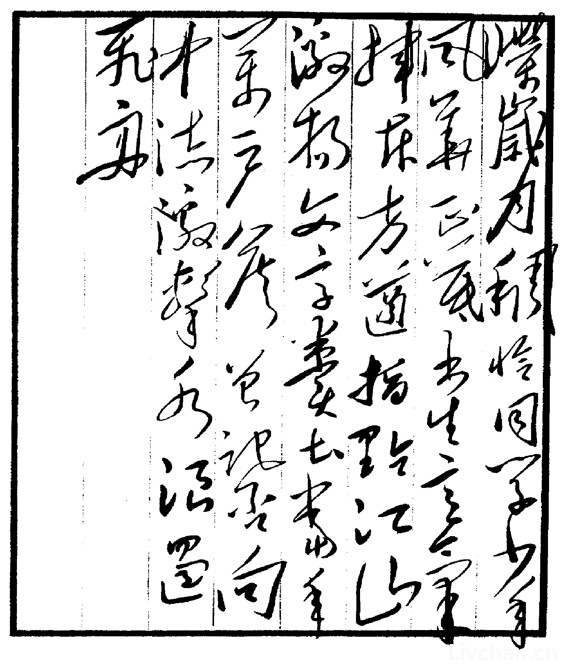 嶸歲月稠恰同學少年
風華正茂書生意氣
揮斥方遒指點江山
激揚文字糞土當年
萬戶侯曾記否向
中流激擊水浪遏
飛舟